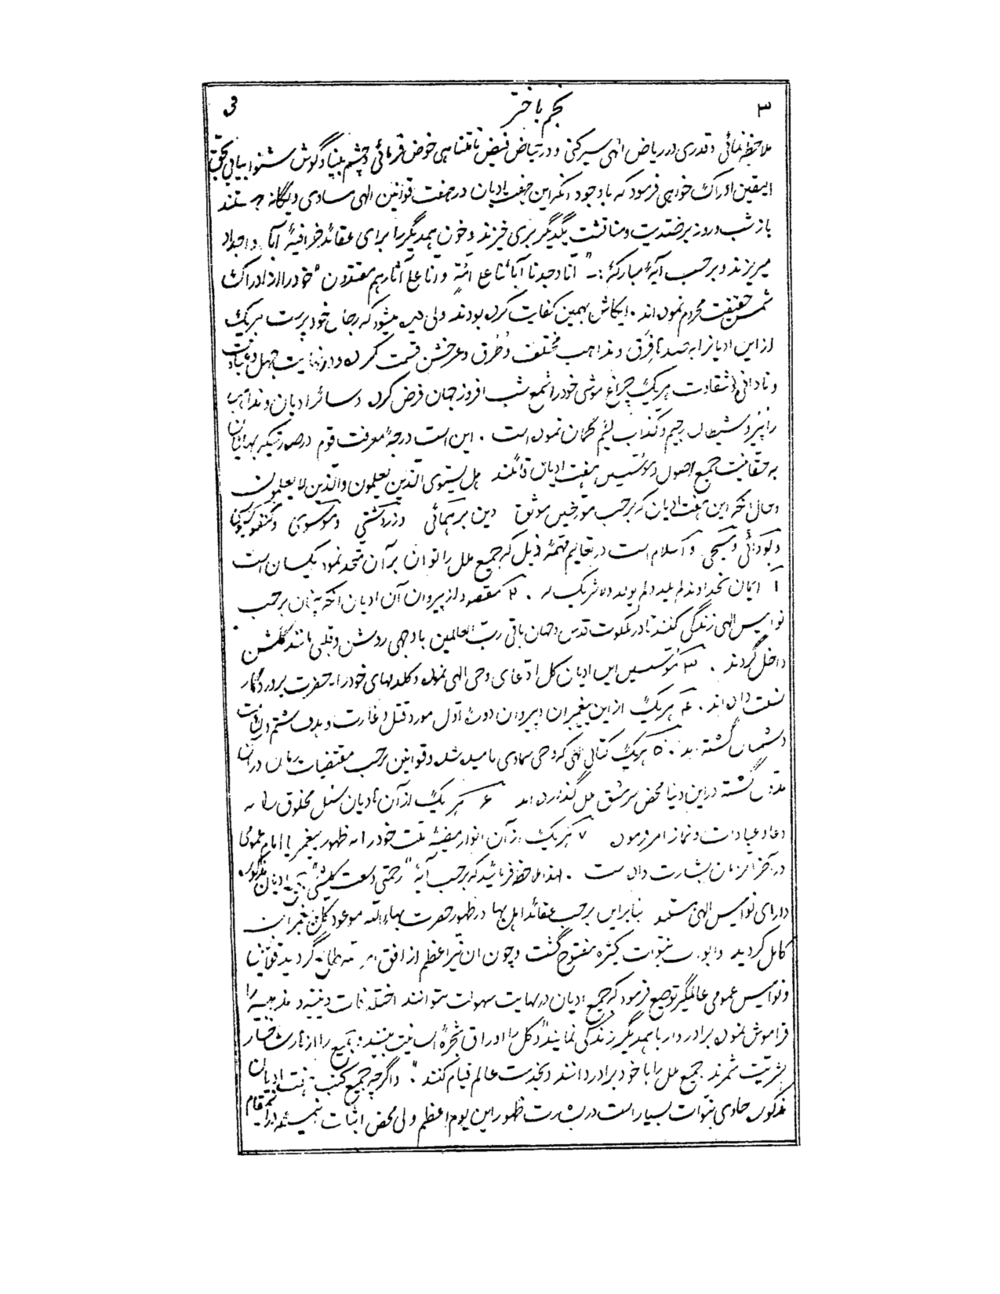 ۳ نجم باختر
ملاحظه نمائی و قدری در ریاض الهی سیر کنی و در حیاض فیض نامتناهی خوض فرمائی و بچشم بینا و گوش شنوا بیائی بحق
الیقین ادراک خواهی فرمود که باوجود آنکه این هفت ادیان در حقیقت قوانین الهی مساوی و یگانه هستند
باز شب و روز بر ضدیت و مناقشت یکدیگر برمی خیزند و خون یکدیگر را برای عقائد خرافیهٔ آباء و اجداد
میریزند و برحسب آیهٔ مبارکهٔ :- " انا وجدنا آبائنا علی امّة و انا علی آثارهم مقتدون " خود را از ادراک
شمس حقیقت محروم نموده‌اند . ایکاش بهمین کفایت کرده بودند ولی دیده میشود که رجال خودپرست هر یک
از این ادیانرا به صدها فِرَق و مذاهب مختلف و طُرق دیگر خشن قسمت کرده و در نهایت جهل و عبادت
و نادانی و شقاوت هر یک چراغ موشی خود را شمع شب افروز جهان فرض کرده و سائر ادیان و مذاهب
را پیرو شیطان رجیم و کذاب لئیم گمان نموده است . این است درجهٔ معرفت قوم در صورتیکه بهائیان
به حقانیت جمیع اصول و مؤسسین هفت ادیان قائلند هل یستوی الّذین یعلمون والّذین لا یعلمون
و حال آنکه این هفت ادیان که برحسب مورخین موثق دین برهمائی و زردشتی و موسوی و کنفوسیوسی
و بودائی و مسیحی و اسلام است در تعالیم مهمّهٔ ذیل که جمیع ملل را توان بر آن متحد نمود یکسان است
۱ ایمان بخداوند لم یلد و لم یولد و لا شریک له . ۲ مقصود از پیروان آن ادیان آنکه چنان برحسب
نوامیس الهی زندگی کنند تا در ملکوت قدس و جهان باقی ربّ العالمین با وجهی روشن و قلبی مانند گلشن
داخل گردند . ۳ مؤسسین این ادیان کل ادّعای وحی الهی نموده و کلام‌های خود را به حضرت پروردگار
نسبت داده‌اند . ۴ هر یک از این پیغمبران و پیروان دورهٔ اوّل مورد قتل و غارت و هدف شتم
دشمنان گشته‌اند . ۵ هر یک کتابی که وحی سماوی نامیده شده و قوانین برحسب مقتضیات زمان در آن
مدوّن گشته در این دنیا محض سرمشق ملل گذارده‌اند ۶ هر یک از آن ادیان سبیل مخلوق را به
دعا و عبادات و نماز امر فرموده ۷ هر یک از آن انوار مضیئه ملت خود را به ظهور پیغمبر یا امام عمومی
در آخر الزمان بشارت داده است . لهذا ملاحظه فرمائید که برحسب آیهٔ " رحمتی وسعت کلّ شیئی " جمیع ادیان مذکوره
دارای نوامیس الهی هستند بنابراین برحسب عقائد اهل بها در ظهور حضرت بهاءالله موعود کل پیغمبران
کامل گردید و ابواب نبوّات کثیره مفتوح گشت و چون آن نیر اعظم از افق طالع گردید قوانین
و نوامیس عمومی عالمگیر توضیع فرمود که جمیع ادیان در نهایت سهولت بتوانند اختلافات دینیه و مذهبیه را
فراموش نموده برادروار با همدیگر زندگی نمایند و کل را اوراق شجرهٔ انسانیت بینند و جمیع را از
بشریت شمرند جمیع ملل را با خود برادر دانند و بخدمت عالم قیام کنند . واگرچه جمیع کتب هفت ادیان
مذکوره حاوی نبوّات بسیار است در بشارت ظهور این یوم اعظم ولی محض اثبات در این مقام